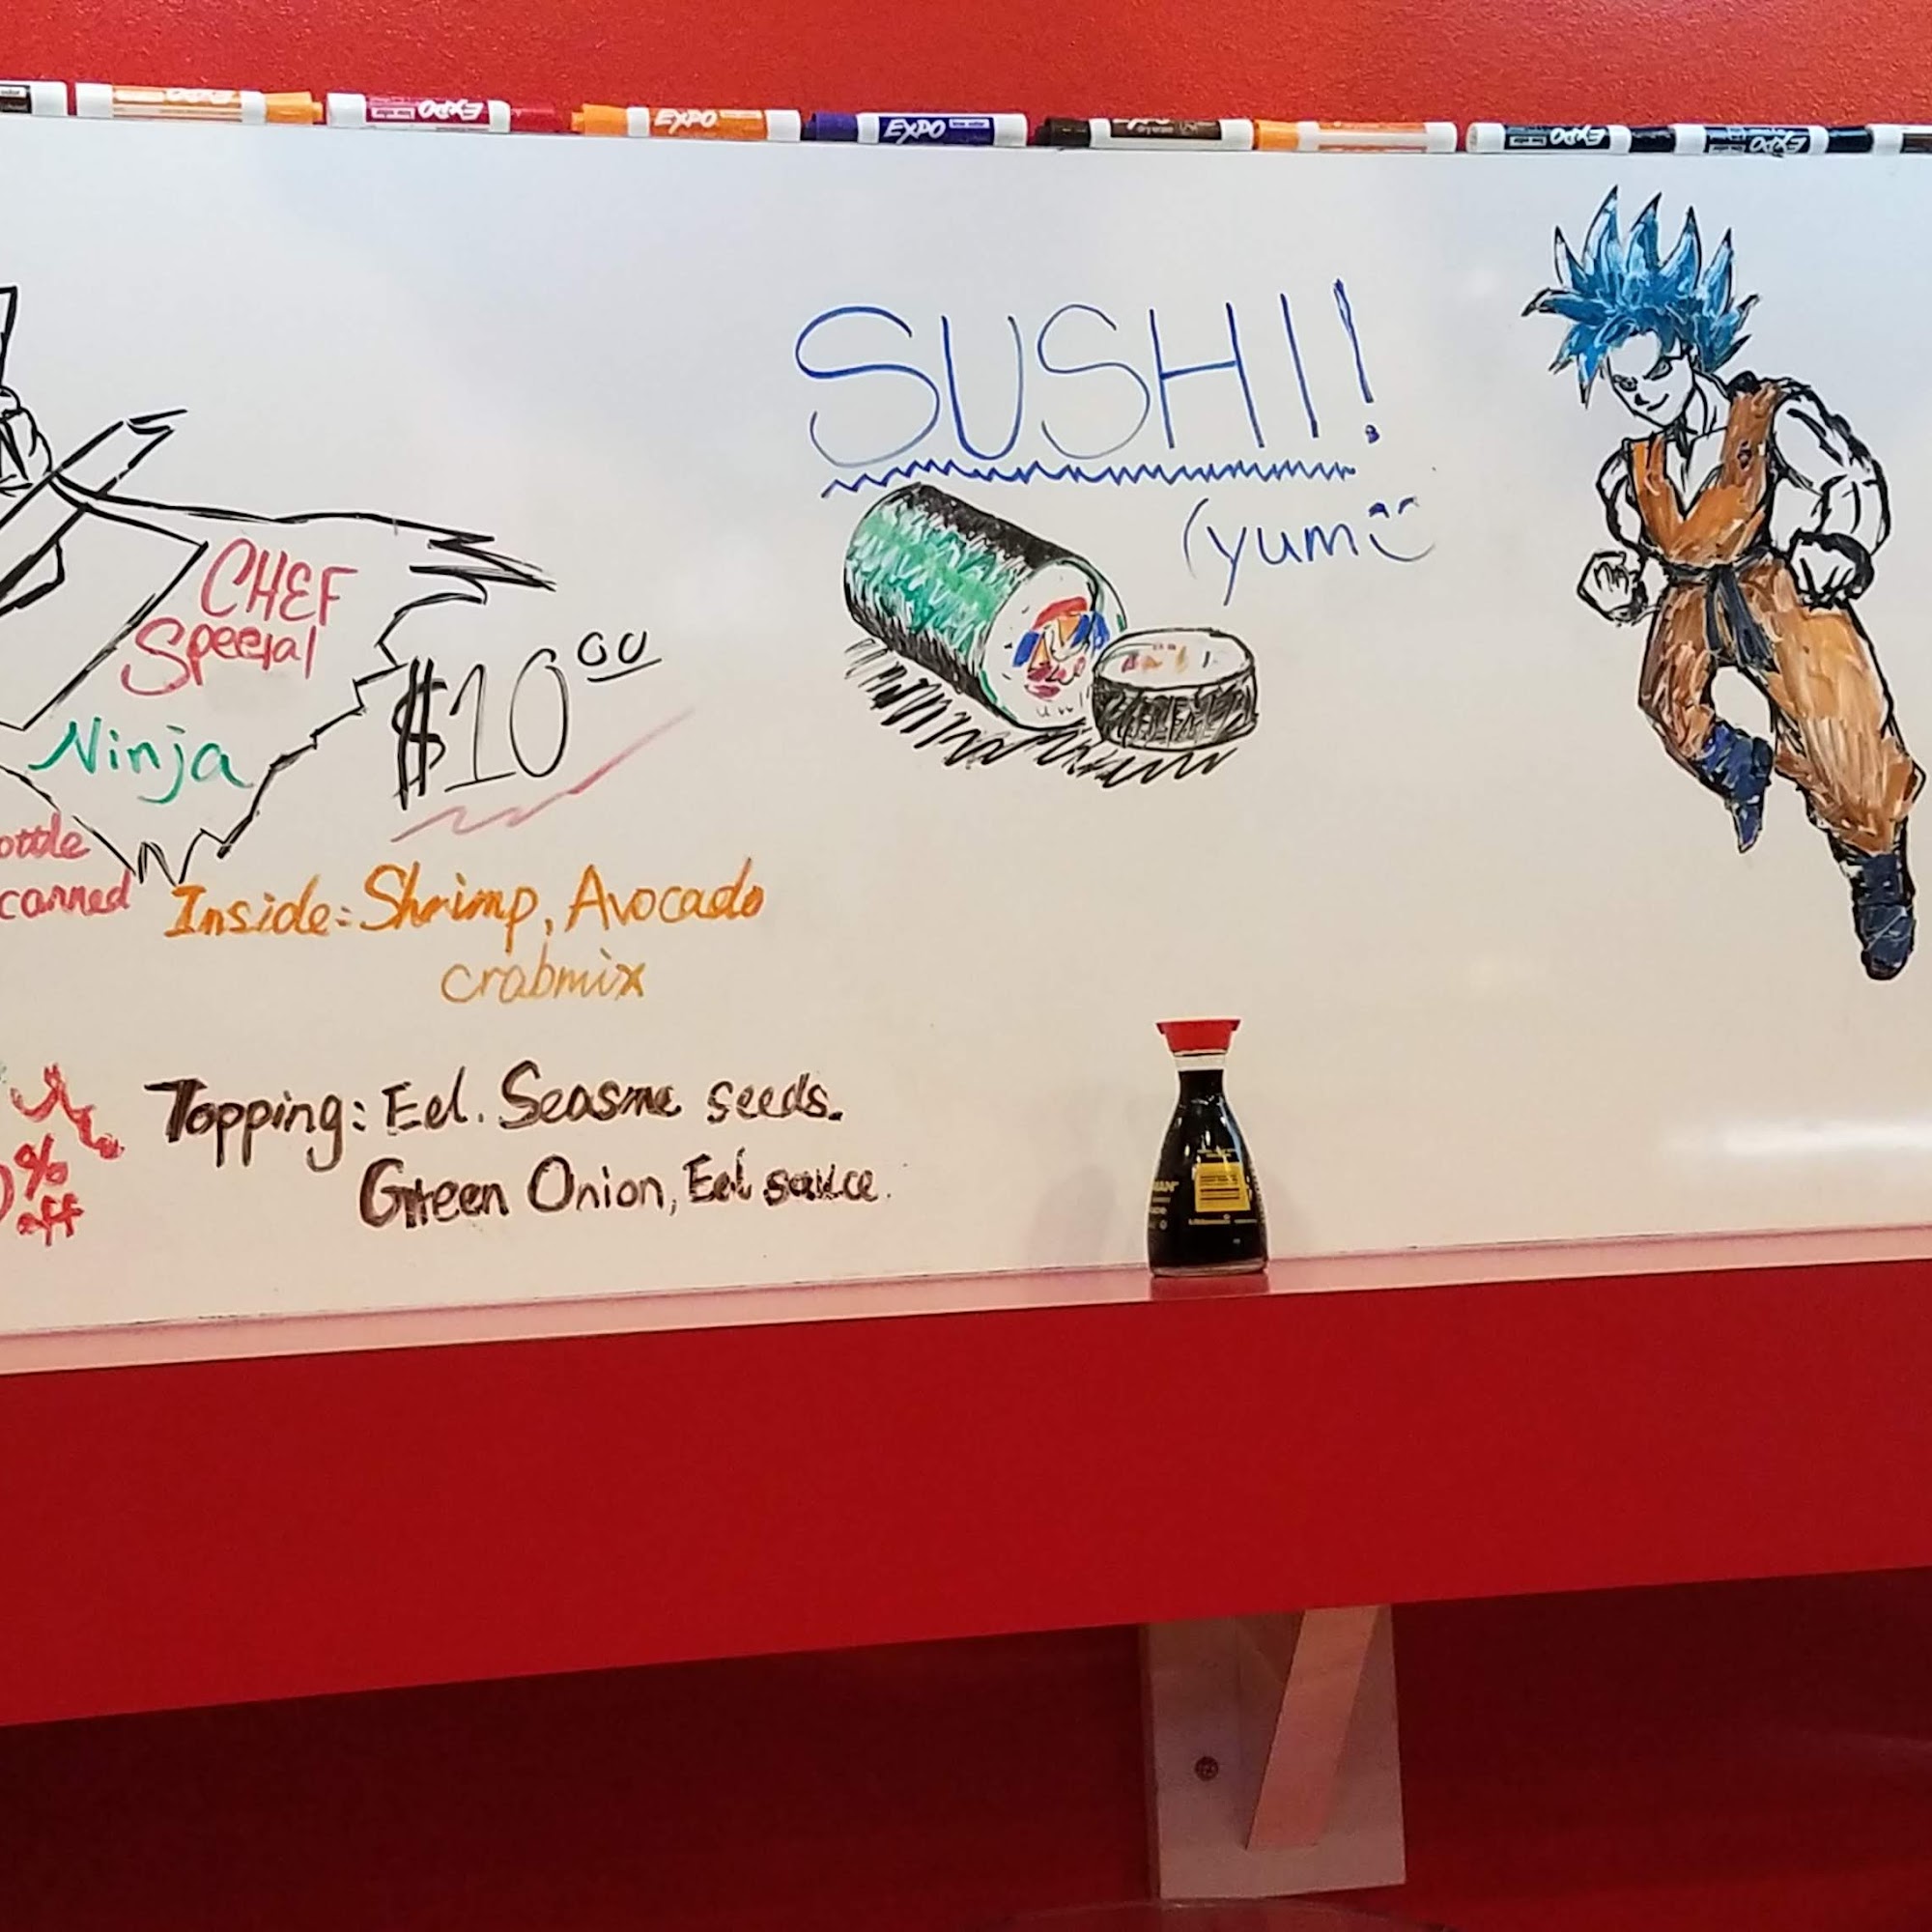 EXPO
EXPO
EXPO
EXPO
EXPO
EXPO
SUSHI!
(yum
CHEF
Special
$10.00
Ninja
canned
Inside: Shrimp, Avocado
crabmix
Topping: Eel. Seasme seeds.
Green Onion, Eel sauce.
%
off